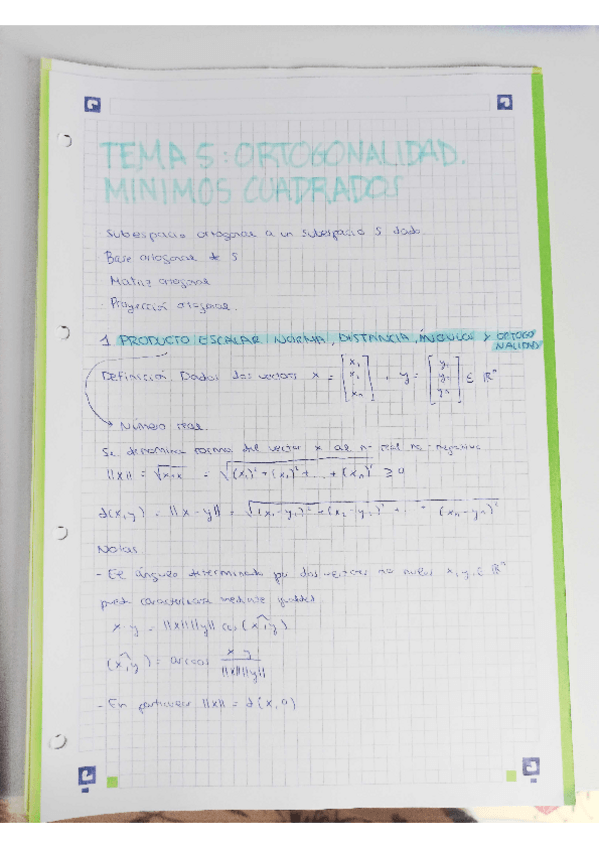 TEMA 5: ORTOGONALIDAD.
MINIMOS CUADRADOS
Subespacio ortogonal a un subespacio S dado.
Base ortogonal de S
Matriz ortogonal
Proyección ortogonal.
1 PRODUCTO ESCALAR, NORMA, DISTANCIA, ÁNGULOS Y ORTOGO
NALIDAD
Definición. Dados dos vectores x = [x₁ x₂ xₙ], y = [y₁ y₂ yₙ] ∈ ℝⁿ
Número real
Se denomina norma del vector x al nº real no negativo
||x|| = √x·x = √(x₁)² + (x₂)² + ... + (xₙ)² ≥ 0
d(x,y) = ||x-y|| = √(x₁-y₁)² + (x₂-y₂)² + ... (xₙ-yₙ)²
Notas
- El ángulo determinado por dos vectores no nulos x, y ∈ ℝⁿ
puede caracterizarse mediante
x y = ||x|| ||y|| cos (x,y)
(x,y) = arccos x y / ||x|| ||y||
- En particular ||x|| = d(x,0)